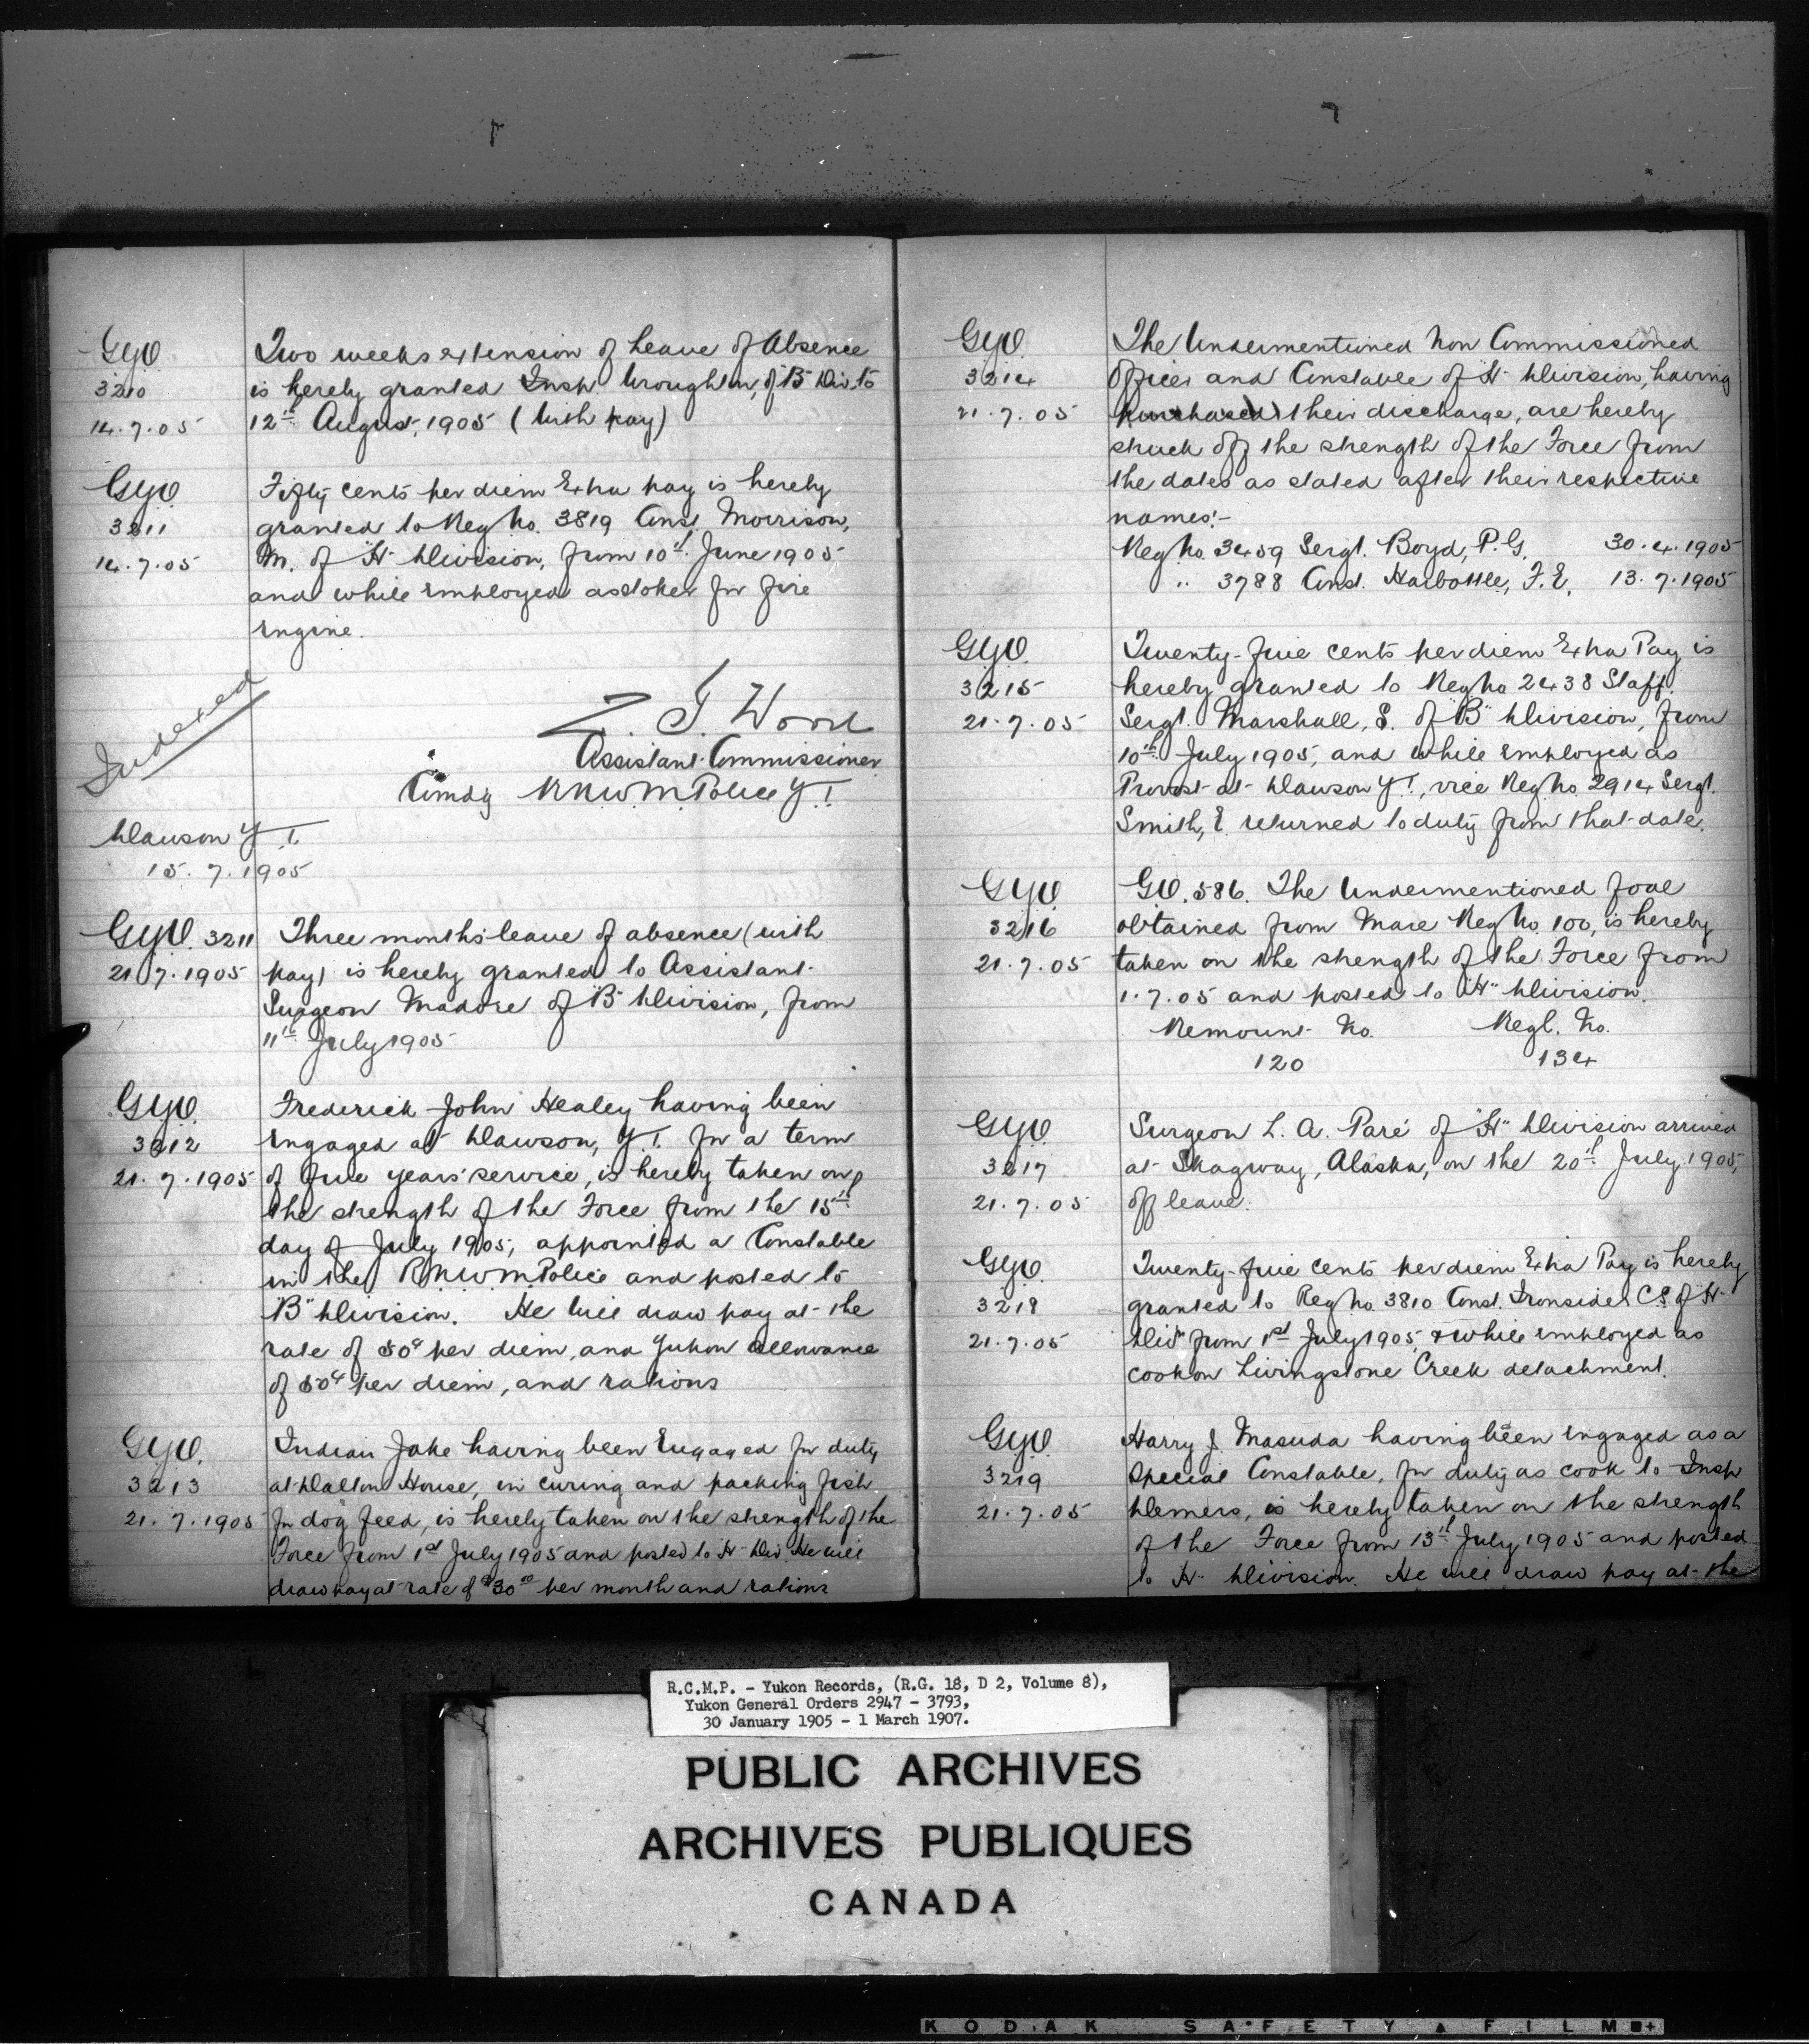 G.Y.O.
3210
14.7.05
Two weeks extension of Leave of Absence
is hereby granted Insp. Wroughton, of "B" Div. to
12th August, 1905 (with pay)
G.Y.O.
3211
14.7.05
Fifty cents per diem Extra pay is hereby
granted to Reg No. 3819 Const. Morrison,
M. of "H" Division, from 10th June 1905
and while employed as stoker for fire
engine.
Indexed
Z. T. Wood
Assistant Commissioner
Comdg R.N.W.M. Police Y.T.
Dawson Y.T.
15.7.1905
G.Y.O. 3211
21.7.1905
Three months leave of absence (with
pay) is hereby granted to Assistant
Surgeon Madore of "B" Division, from
11th July 1905
G.Y.O.
3212
21.7.1905
Frederick John Healey having been
engaged at Dawson, Y.T. for a term
of five years' service, is hereby taken on
the strength of the Force from the 15th
day of July 1905, appointed a Constable
in the R.N.W.M. Police and posted to
"B" Division. He will draw pay at the
rate of 50¢ per diem, and Yukon allowance
of 50¢ per diem, and rations
G.Y.O.
3213
21.7.1905
Indian Jake having been Engaged for duty
at Dalton House, in curing and packing fish
for dog feed, is hereby taken on the strength of the
Force from 1st July 1905 and posted to "H" Div. He will
draw pay at rate of $30.00 per month and rations
G.Y.O.
3214
21.7.05
The Undermentioned Non Commissioned
Officer and Constable of "H" Division, having
purchased their discharge, are hereby
struck off the strength of the Force from
the dates as stated after their respective
names:-
Reg No. 3459 Sergt. Boyd, P.G. 30.4.1905
" 3788 Const. Harbottle, F.E. 13.7.1905
G.Y.O.
3215
21.7.05
Twenty-five cents per diem Extra Pay is
hereby granted to Reg No 2438 Staff.
Sergt. Marshall, S. of "B" Division, from
10th July 1905, and while employed as
Provost at Dawson Y.T., vice Reg No. 2914 Sergt.
Smith, E. returned to duty from that date.
G.Y.O.
3216
21.7.05
G.O. 586. The Undermentioned foal
obtained from Mare Reg No. 100, is hereby
taken on the strength of the Force from
1.7.05 and posted to "H" Division.
Remount No. Regl. No.
120 134
G.Y.O.
3217
21.7.05
Surgeon L. A. Paré of "H" Division arrived
at Skagway, Alaska, on the 20th July 1905,
off leave.
G.Y.O.
3218
21.7.05
Twenty-five cents per diem Extra Pay is hereby
granted to Reg No. 3810 Const. Ironside C.S. of "H"
Divn from 1st July 1905, & while employed as
cook on Livingstone Creek detachment.
G.Y.O.
3219
21.7.05
Harry J. Masuda having been engaged as a
Special Constable, for duty as cook to Insp
Demers, is hereby taken on the strength
of the Force from 13th July 1905 and posted
to "H" Division. He will draw pay at the
R.C.M.P. - Yukon Records, (R.G. 18, D 2, Volume 8),
Yukon General Orders 2947 - 3793,
30 January 1905 - 1 March 1907.
PUBLIC ARCHIVES
ARCHIVES PUBLIQUES
CANADA
KODAK SAFETY FILM